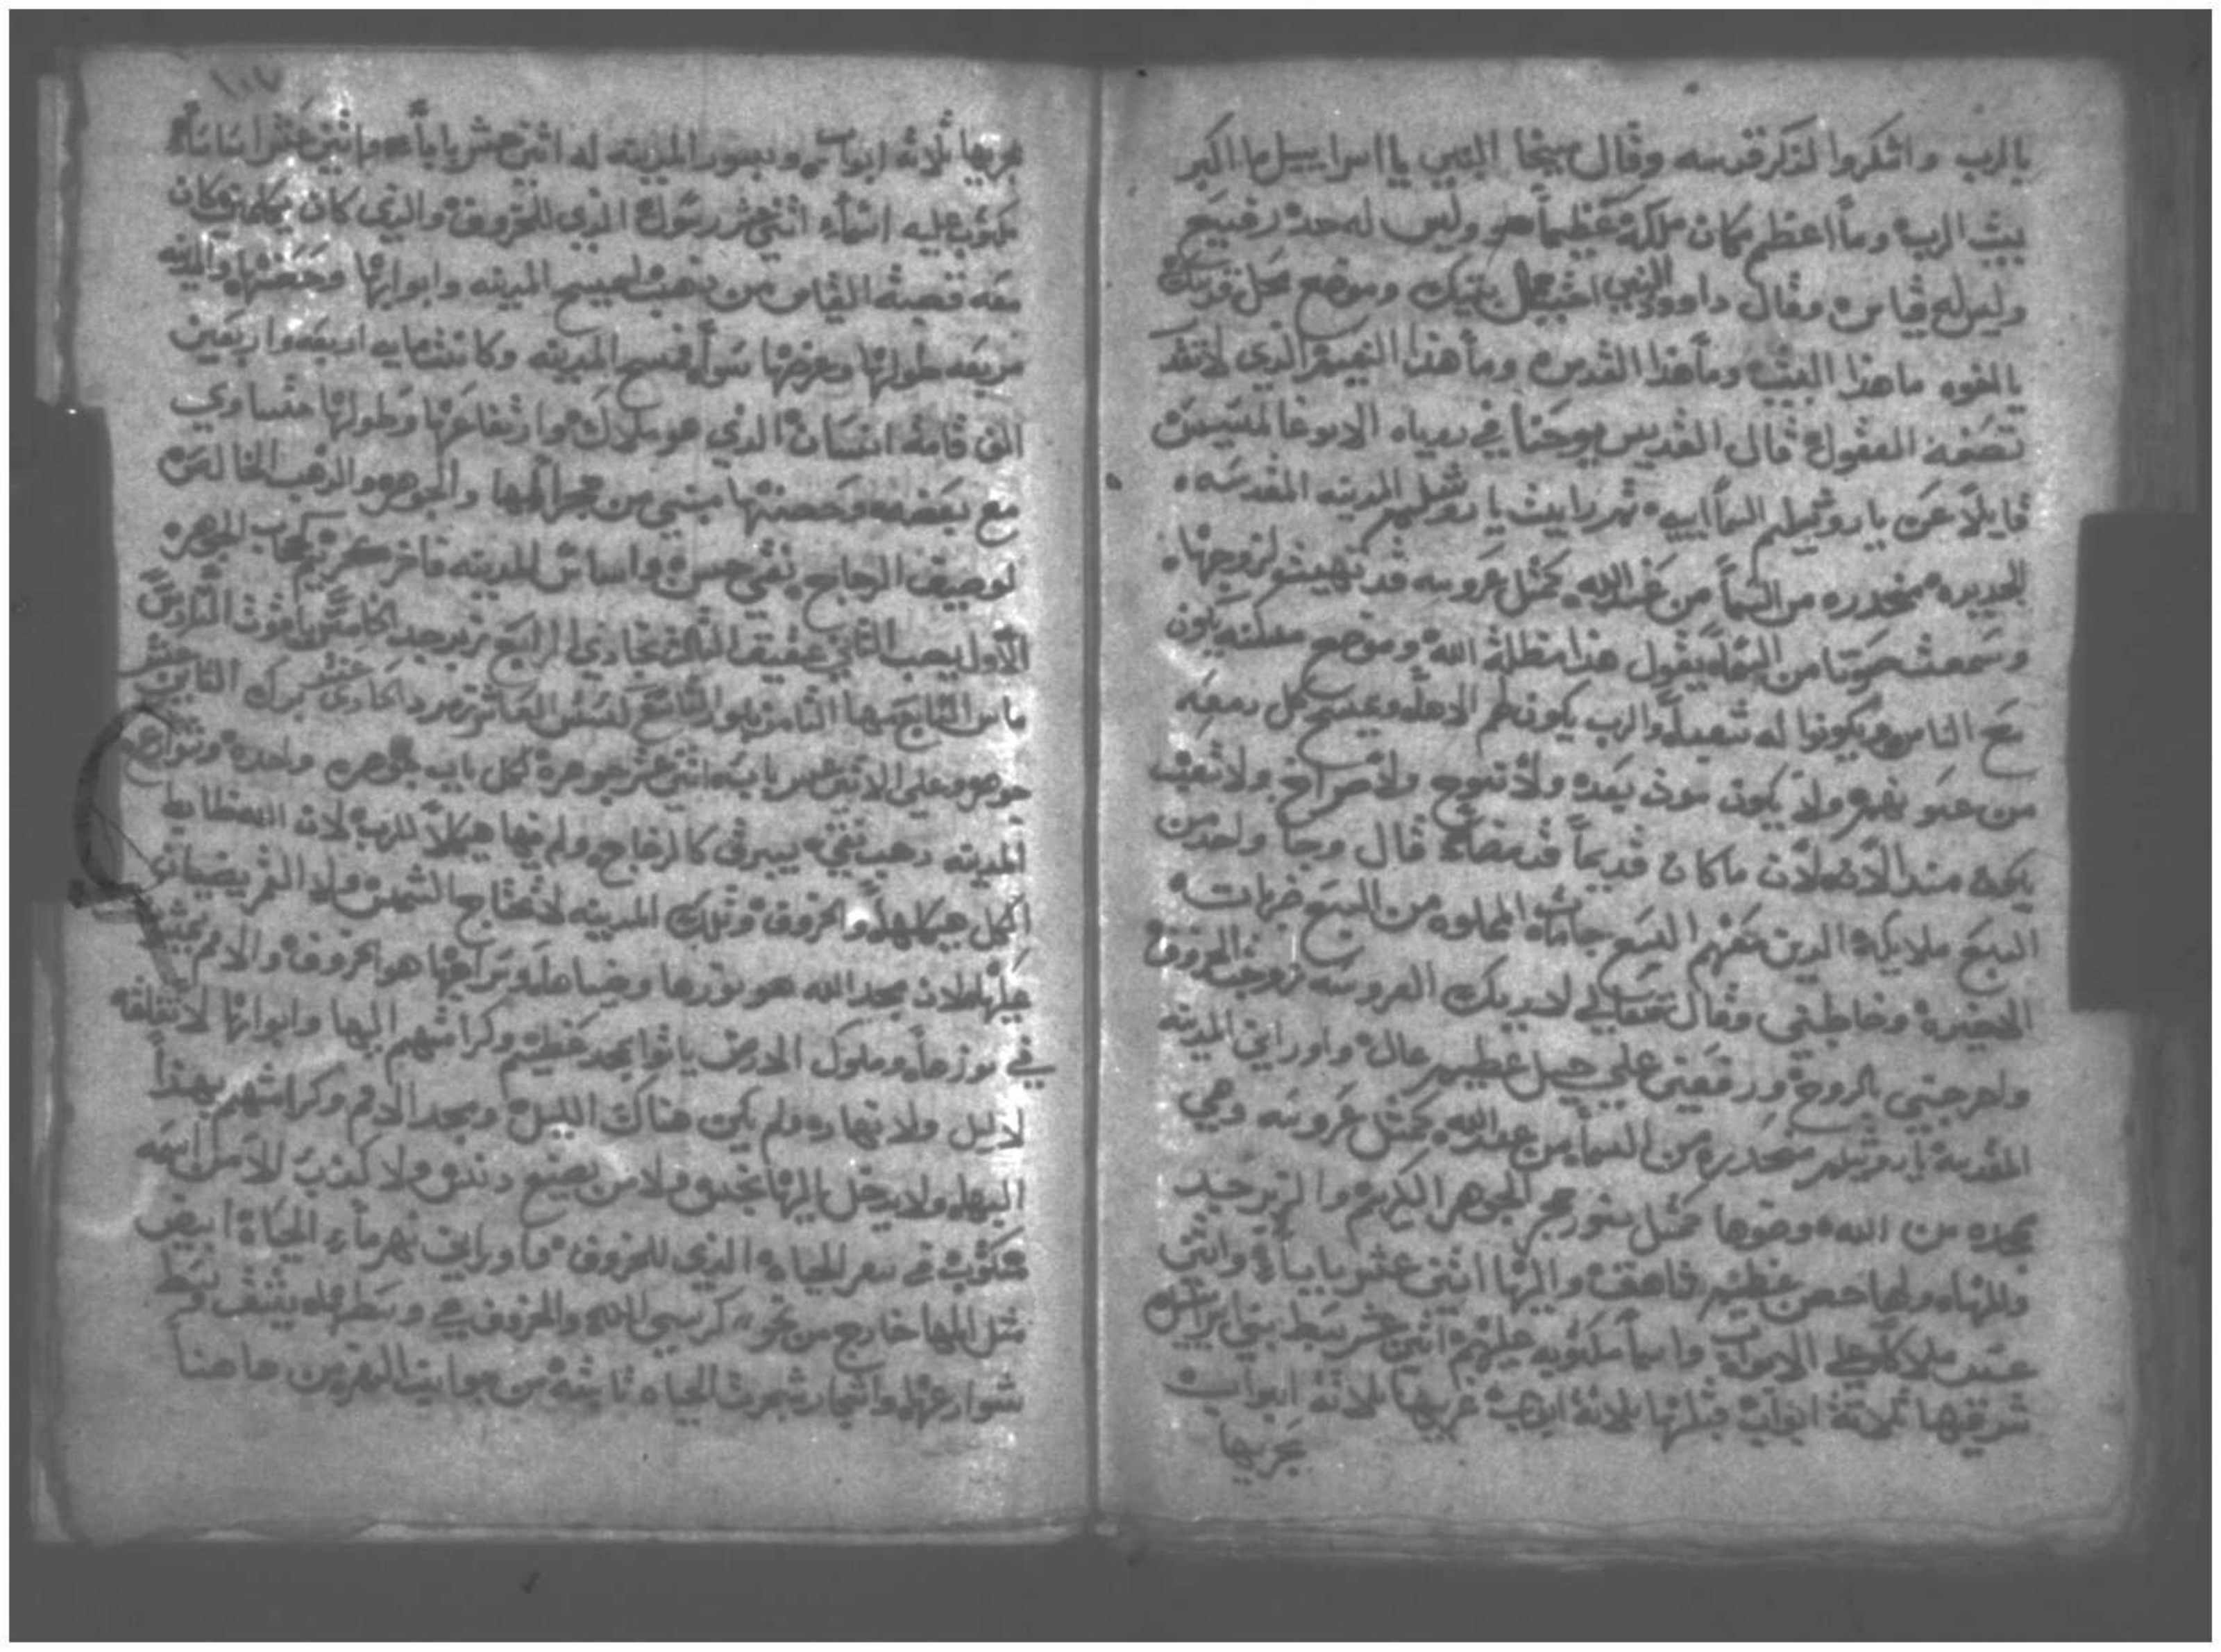 بالرب واشكروا لذكر قدسه وقال ميخا النبي يا اسراييل ما اكبر
بيت الرب وما اعظم مكان ملكه عظيماً هو وليس له حد رفيع
وليس له قياس وقال داوود النبي احببت جمال بيتك وموضع محل قدسك
يالخوه ما هذا البيت وما هذا القدس وما هذا النعيم الذي لا تقدر
تصفه العقول قال القديس يوحنا في روياه الابوغالمسيس
قايلاً عن ياروشليم السماييه ثم رايت ياروشليم المدينه المقدسه
الجديده منحدره من السما من عند الله كمثل عروسه قد تهيت لزوجها
وسمعت صوتا من السما يقول هذا مظلة الله وموضع مسكنه يكون
مع الناس ويكونوا له شعباً والرب يكون لهم الاهاً ويمسح كل دمعه
من عيونهم ولا يكون موت بعد ولا نوح ولا صراخ ولا تعب
يكون منذ الان لان ما كان قديماً قد مضا قال وجا واحد من
السبع ملايكه الدين معهم السبع جامات المملوه من السبع ضربات
الاخيره وخاطبني وقال تعالي لاريك العروسه زوجت الخروف
واخرجني بالروح ورفعني علي جبل عظيم عال واوراني المدينه
المقدسه ياروشليم منحدره من السما من عند الله كمثل عروسه وهي
بمجده من الله وضوها كمثل نور حجر الجوهر الكريم والزبرجد
والمهاه ولها حصن عظيم شاهق واليها اثني عشر باباً واثني
عشر ملاك علي الابواب واسما مكتوبه عليهم اثني عشر سبط بني اسراييل
شرقيها ثلاثة ابواب قبليها ثلاثة ابواب غربيها ثلاثة ابواب
بحريها
١٠٧
بحريها ثلاثه ابواب وسور المدينه له اثني عشر باباً واثني عشر اساساً
مكتوب عليه اسماء اثني عشر رسول الذي للخروف والذي كان يكلمني كان
معه قصبة القياس من ذهب ليمسح المدينه وابوابها وحصنها والمدينه
مربعه طولها وعرضها سواً فمسح المدينه وكانت مايه اربعه واربعين
الف قامة انسان الذي هو ملاك وارتفاعها وطولها متساوي
مع بعضه وحصنها مبني من حجر المها والجوهر والذهب الخالص
لوصيف الزجاج نقي حسن واساس المدينه فاخر كريم
الاول يصب الثاني عقيق الثالث بجادي الرابع زبرجد الخامس ياقوت السادس
ماس السابع مها الثامن بلور التاسع العاشر زمرد الحادي عشر الثاني عشر
جوهر وعلى الاثني عشر باب اثني عشر جوهرة لكل باب جوهره واحده وشوارع
المدينه دهب نقي يبرق كالزجاج ولم فيها هيكلاً للرب لان الله ضابط
الكل هيكلها والخروف وتلك المدينه لا تحتاج الشمس ولا القمر يضيان
عليها لان مجد الله هو نورها وضياها وسراجها هو الخروف والامم تمشي
في نورها وملوك الارض ياتوا بمجد عظيم وكرامتهم اليها وابوابها لا تغلقه
لا ليل ولا نهار ولم يكن هناك الليل ومجد الامم وكرامتهم بهذا
اليها ولا يدخل اليها نجس ولا من يصنع دنس ولا كذب الا من اسمه
مكتوب في سفر الحياه الذي للخروف واوراني نهر ماء الحياة ابيض
مثل المها خارج من نحو كرسي الله والخروف في وسطها
شوارعها واشجار شجرت الحياه نابته من جوانب النهر من هاهنا